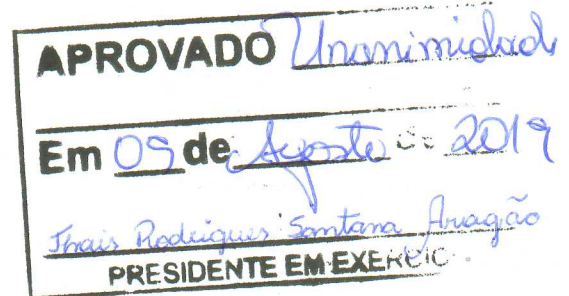 APROVADO Unanimidade
Em 09 de Agosto de 2019
Thais Rodrigues Santana Aragão
PRESIDENTE EM EXERCIC